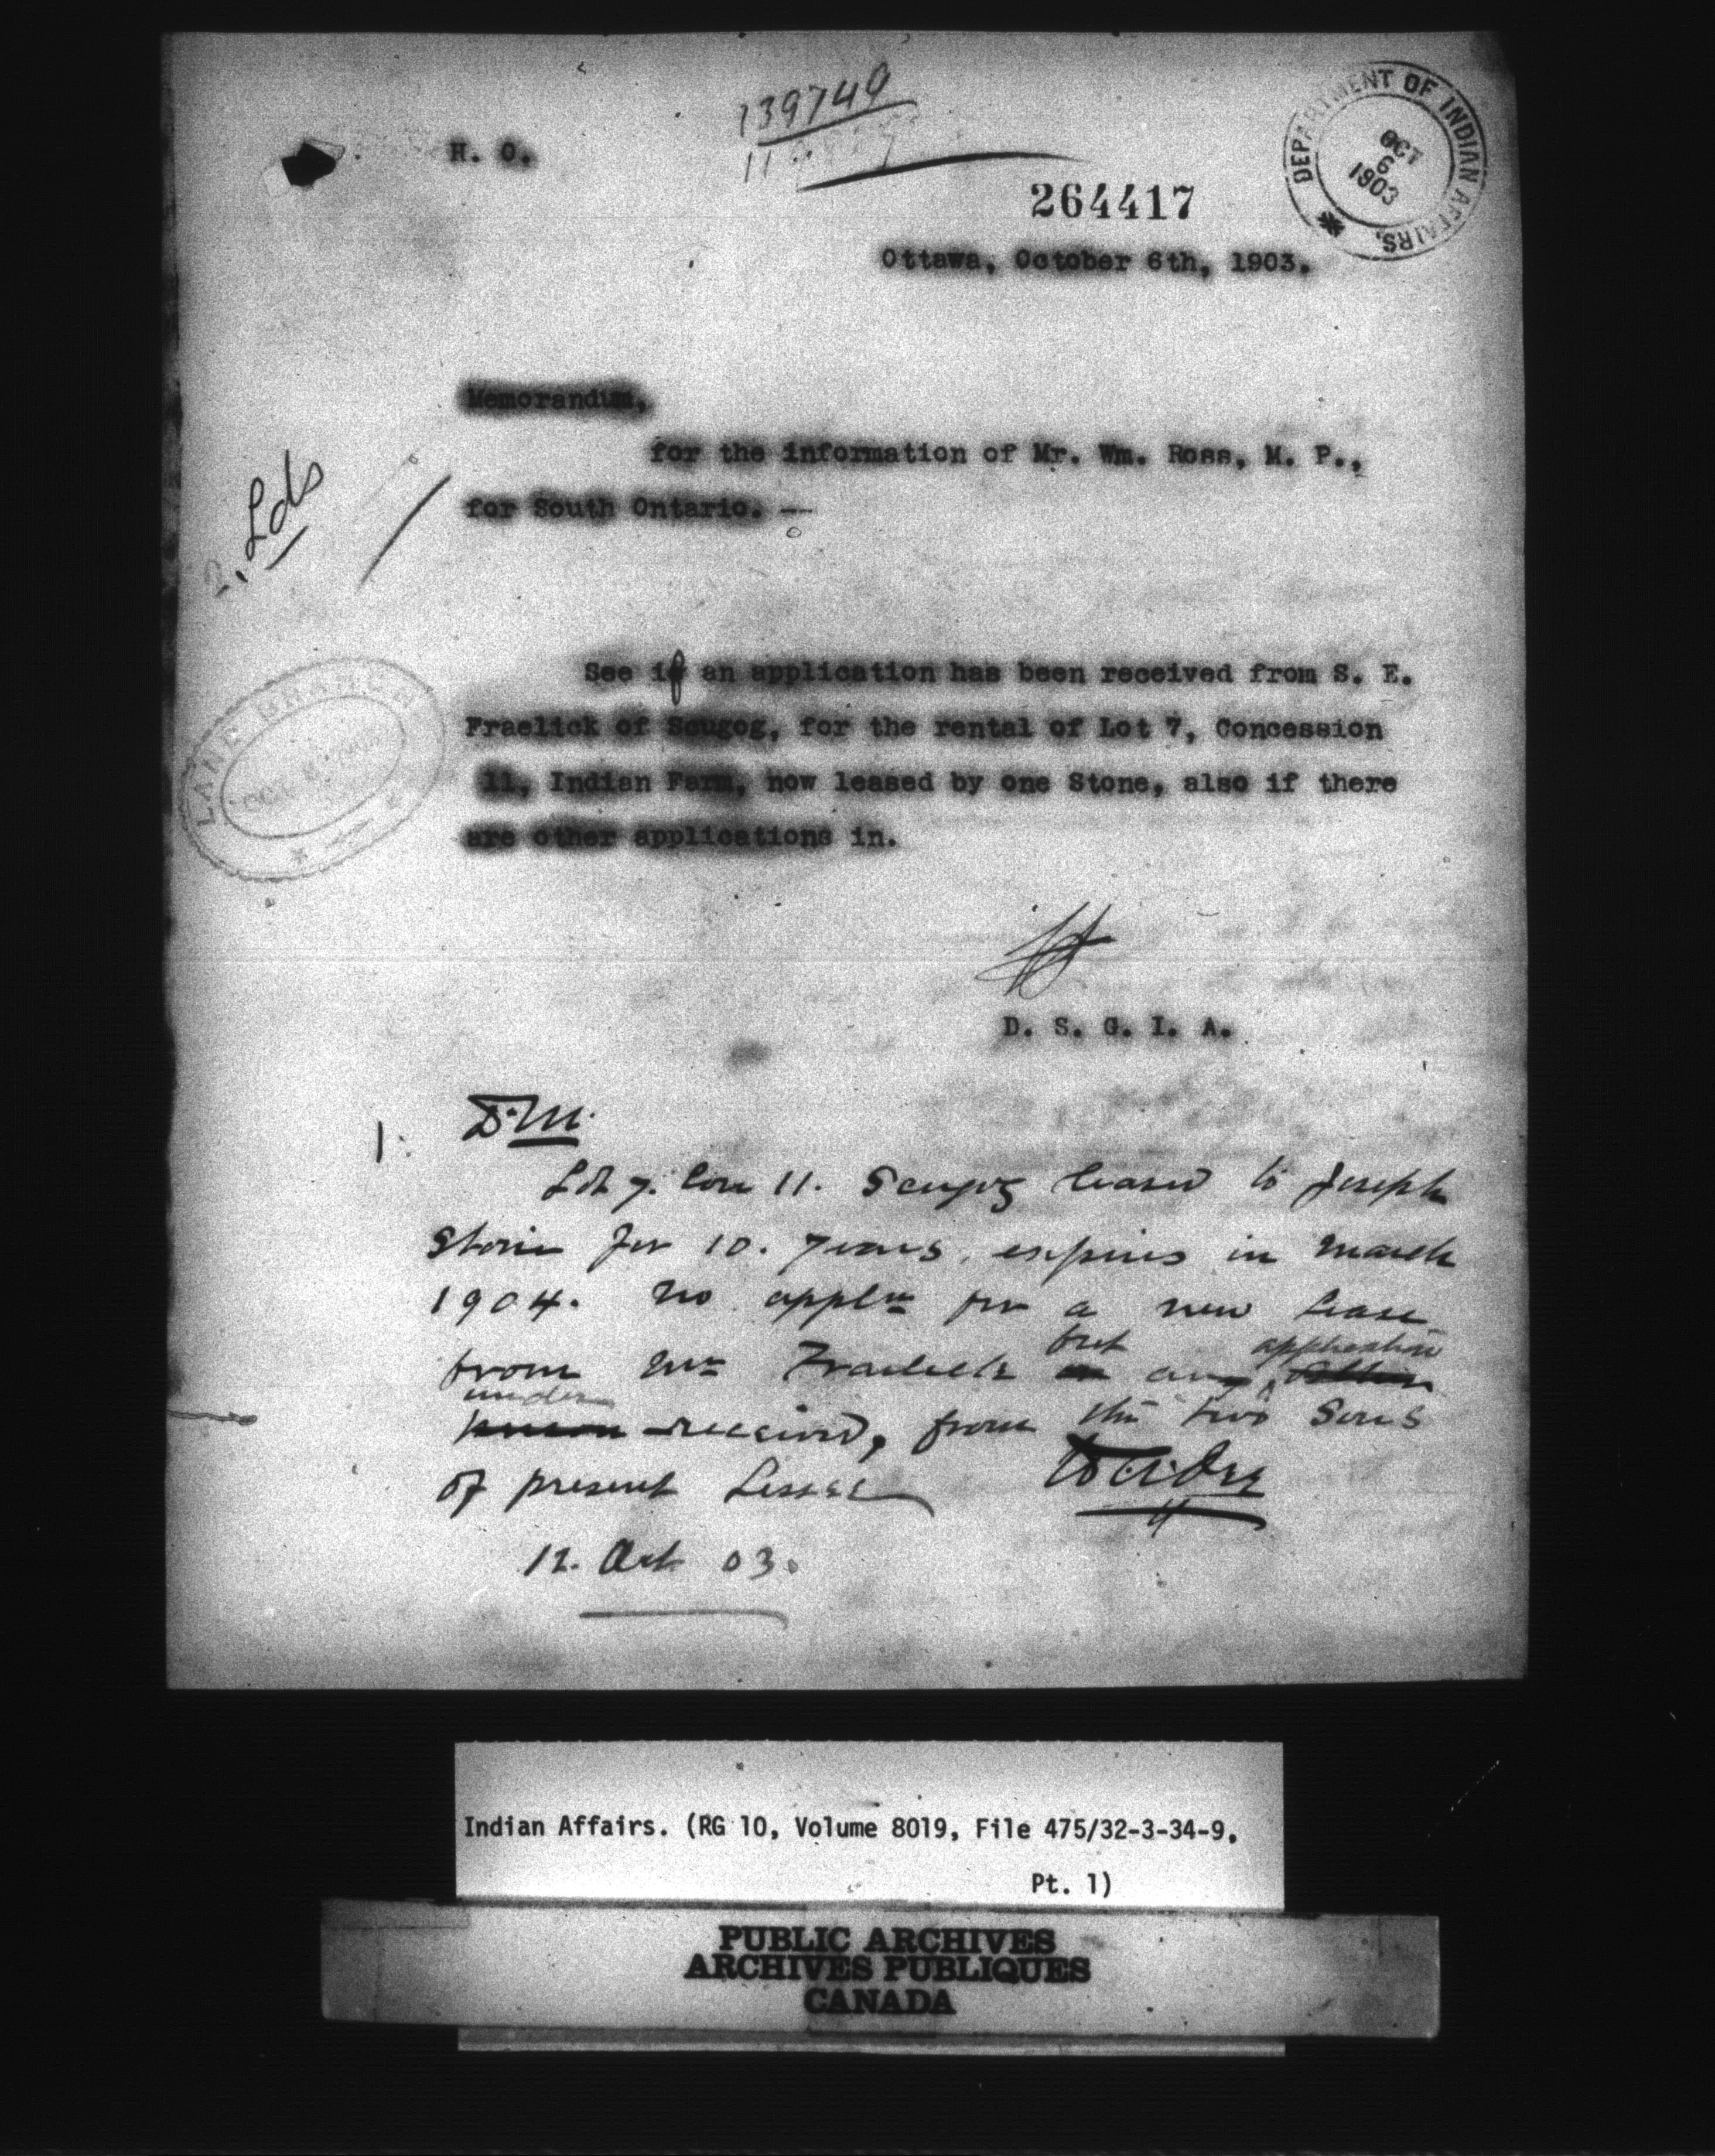 139740
H. O.
264417
DEPARTMENT OF INDIAN AFFAIRS.
OCT
6
1903
Ottawa, October 6th, 1903.
Memorandum,
for the information of Mr. Wm. Ross, M. P.,
for South Ontario. —
2, Lds
See if an application has been received from S. E.
Fraelick of Scugog, for the rental of Lot 7, Concession
11, Indian Farm, now leased by one Stone, also if there
are other applications in.
LAND BRANCH
OCT
D. S. G. I. A.
1. D.M.
Lot 7. Con 11. Scugog leased to Joseph
Stone for 10. years, expires in March
1904. No appln for a new lease
from Mr Fraelick but any application
under received, from the two Sons
of present Lessee
12. Oct 03.
Indian Affairs. (RG 10, Volume 8019, File 475/32-3-34-9,
Pt. 1)
PUBLIC ARCHIVES
ARCHIVES PUBLIQUES
CANADA